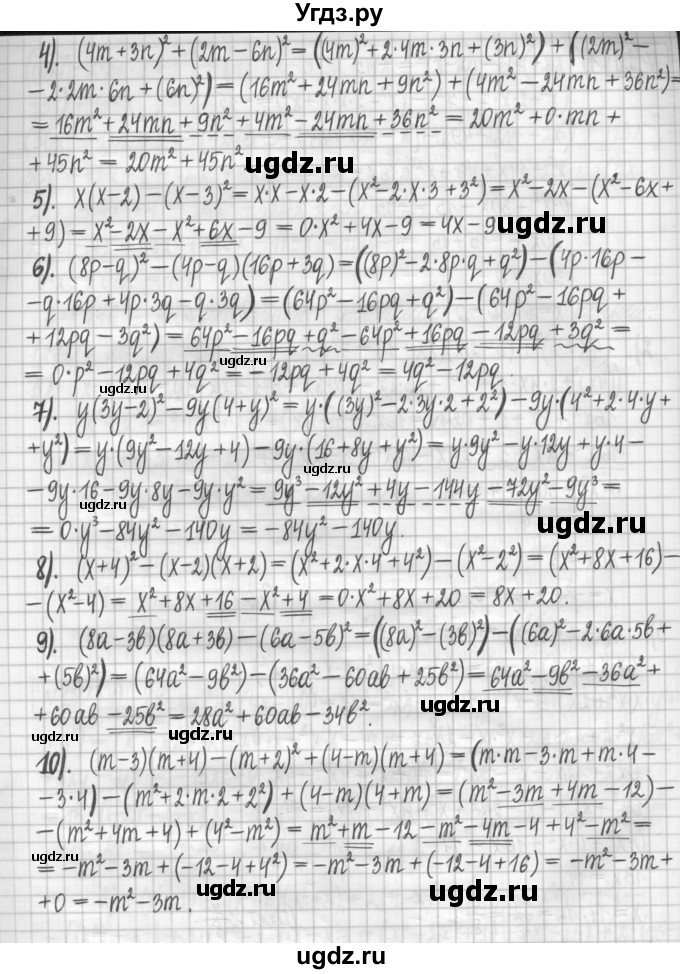 Угдз.ру
4). (4m+3n)²+(2m-6n)²=((4m)²+2·4m·3n+(3n)²)+((2m)²-
-2·2m·6n+(6n)²)=(16m²+24mn+9n²)+(4m²-24mn+36n²)=
=16m²+24mn+9n²+4m²-24mn+36n²=20m²+0·mn+
+45n²=20m²+45n²
ugdz.ru
5). x(x-2)-(x-3)²=x·x-x·2-(x²-2·x·3+3²)=x²-2x-(x²-6x+
+9)=x²-2x-x²+6x-9=0·x²+4x-9=4x-9
ugdz.ru
6). (8p-q)²-(4p-q)(16p+3q)=((8p)²-2·8p·q+q²)-(4p·16p-
ugdz.ru
-q·16p+4p·3q-q·3q)=(64p²-16pq+q²)-(64p²-16pq+
+12pq-3q²)=64p²-16pq+q²-64p²+16pq-12pq+3q²=
ugdz.ru
=0·p²-12pq+4q²=-12pq+4q²=4q²-12pq.
ugdz.ru
7). y(3y-2)²-9y(4+y)²=y·((3y)²-2·3y·2+2²)-9y·(4²+2·4·y+
+y²)=y·(9y²-12y+4)-9y·(16+8y+y²)=y·9y²-y·12y+y·4-
ugdz.ru
-9y·16-9y·8y-9y·y²=9y³-12y²+4y-144y-72y²-9y³=
=0·y³-84y²-140y=-84y²-140y.
ugdz.ru
8). (x+4)²-(x-2)(x+2)=(x²+2·x·4+4²)-(x²-2²)=(x²+8x+16)-
ugdz.ru
-(x²-4)=x²+8x+16-x²+4=0·x²+8x+20=8x+20.
9). (8a-3b)(8a+3b)-(6a-5b)²=((8a)²-(3b)²)-((6a)²-2·6a·5b+
+(5b)²)=(64a²-9b²)-(36a²-60ab+25b²)=64a²-9b²-36a²+
ugdz.ru
+60ab-25b²=28a²+60ab-34b².
ugdz.ru
ugdz.ru
10). (m-3)(m+4)-(m+2)²+(4-m)(m+4)=(m·m-3·m+m·4-
ugdz.ru
-3·4)-(m²+2·m·2+2²)+(4-m)(4+m)=(m²-3m+4m-12)-
-(m²+4m+4)+(4²-m²)=m²+m-12-m²-4m-4+4²-m²=
ugdz.ru
=-m²-3m+(-12-4+4²)=-m²-3m+(-12-4+16)=-m²-3m+
ugdz.ru
ugdz.ru
+0=-m²-3m.
ugdz.ru